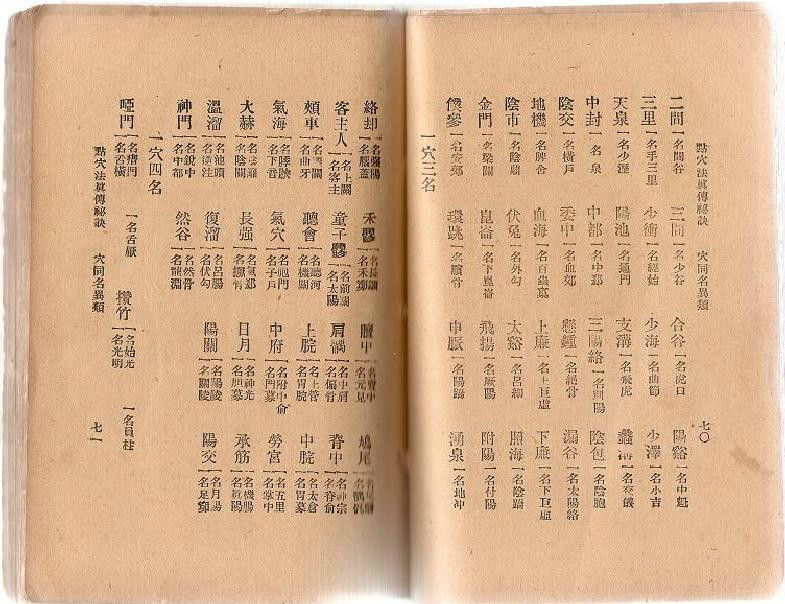 點穴法眞傳秘訣 穴同名異類 七〇
二間 一名間谷 三間 一名少谷 合谷 一名虎口 陽谿 一名中魁
三里 一名手三里 少衝 一名經始 少海 一名曲節 少澤 一名小吉
天泉 一名 陽池 一名 支溝 一名飛虎 蠡溝 一名交儀
中封 一名泉 中都 一名中郄 三陽絡 一名 陰包 一名陰胞
陰交 一名橫戶 委中 一名血郄 懸鐘 一名絕骨 漏谷 一名太陽絡
地機 一名脾舍 血海 一名百蟲窠 上廉 一名上巨虛 下廉 一名下巨虛
陰市 一名陰鼎 伏兔 一名外勾 太谿 一名呂細 照海 一名陰蹻
金門 一名梁關 崑崙 一名下崑崙 飛揚 一名厥陽 附陽 一名付陽
僕參 一名安邪 環跳 一名髕骨 申脈 一名陽蹻 湧泉 一名地冲
一穴三名
絡却 一名强陽 一名腦蓋 禾髎 一名 一名禾郄 膻中 一名 一名元見 鳩尾 一名 一名
客主人 一名上關 一名客主 童子髎 一名前關 一名太陽 肩髃 一名中肩 一名偏骨 脊中 一名神宗 一名脊俞
頰車 一名機關 一名曲牙 聽會 一名聽河 一名機關 上脘 一名上管 一名胃脘 中脘 一名太倉 一名胃募
氣海 一名脖胦 一名下肓 氣穴 一名胞門 一名子戶 中府 一名府中俞 一名肺募 勞宮 一名五里 一名掌中
大赫 一名陰維 一名陰關 長强 一名氣郄 一名橛骨 日月 一名神光 一名胆募 承筋 一名腨腸 一名直陽
溫溜 一名池頭 一名逆注 復溜 一名昌陽 一名伏勾 陽關 一名陽陵 一名關陵 陽交 一名別陽 一名足郄
神門 一名銳中 一名中都 然谷 一名然骨 一名龍淵
一穴四名
啞門 一名瘖門 一名舌橫 一名舌厭 攢竹 一名始光 一名光明 一名員柱
點穴法眞傳秘訣 穴同名異類 七一